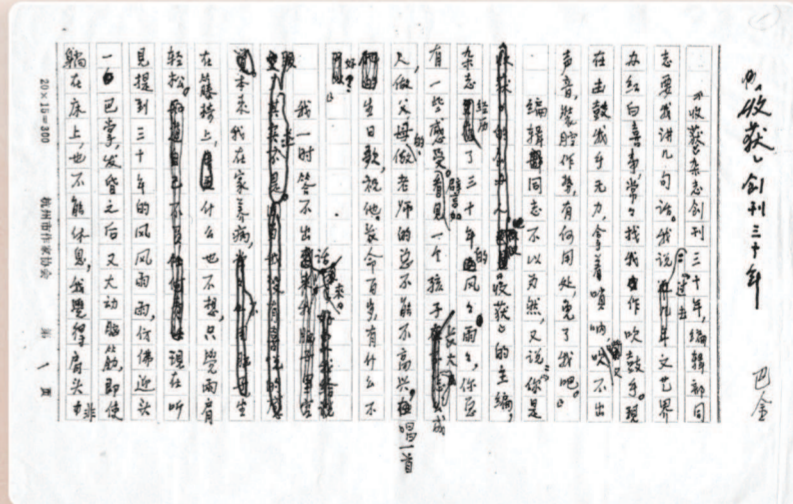 《收获》创刊三十年
巴金
《收获》杂志创刊三十年,编辑部同
志要我讲几句话。我说:“过去几年文艺界
办红白喜事,常常找我作吹鼓手,现
在击鼓我手无力,拿着唢呐又吹不出
声音,装腔作势,有何用处,免了我吧。”
编辑同志不以为然,又说:“你是
《收获》的主编,
杂志经历了三十年的风风雨雨,你总
有一些感受。看见一个孩子长大成
人,做父母的、做老师的总不能不高兴,唱一首
生日歌,祝他长命百岁,有什么不
好?”
我一时答不出话来。
本来我在家养病,坐
在藤椅上,什么也不想,只觉两肩
轻松。现在听
见提到三十年的风风雨雨,仿佛迎头
一巴掌,发昏之后又大动脑筋,即使
躺在床上,也不能休息,我觉得肩头
20×15=300
杭州市作家协会
第 1 页